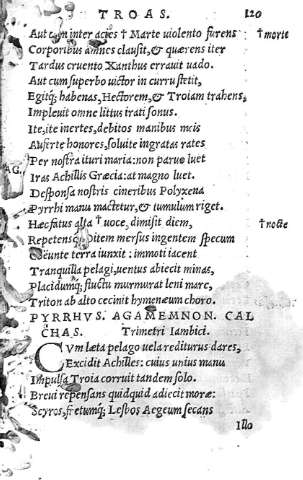 TROAS. 120
Aut cum inter acies † Marte uiolento furens †morte
Corporibus amnes clausit, & quærens iter
Tardus cruento Xanthus errauit uado.
Aut cum superbo uictor in curru stetit,
Egitq; habenas, Hectorem, & Troiam trahens,
Impleuit omne littus irati sonus.
Ite, ite inertes, debitos manibus meis
Auferte honores, soluite ingratas rates
Per nostra ituri maria: non paruo luet
Iras Achillis Græcia: at magno luet.
Desponsa nostris cineribus Polyxena
Pyrrhi manu mactetur, & tumulum riget.
Hæc fatus alta † uoce, dimisit diem, †nocte
Repetensq; Ditem mersus ingentem specum
Coëunte terra iunxit: immoti iacent
Tranquilla pelagi, uentus abiecit minas,
Placidumq; fluctu murmurat leni mare,
Triton ab alto cecinit hymenæum choro.
PYRRHVS. AGAMEMNON. CAL
CHAS. Trimetri Iambici.
CVm læta pelago uela rediturus dares,
Excidit Achilles: cuius unius manu
Impulsa Troia corruit tandem solo.
Breui repensans quidquid adiecit moræ:
Scyros, fretumq; Lesbos Aegeum secans
Illo